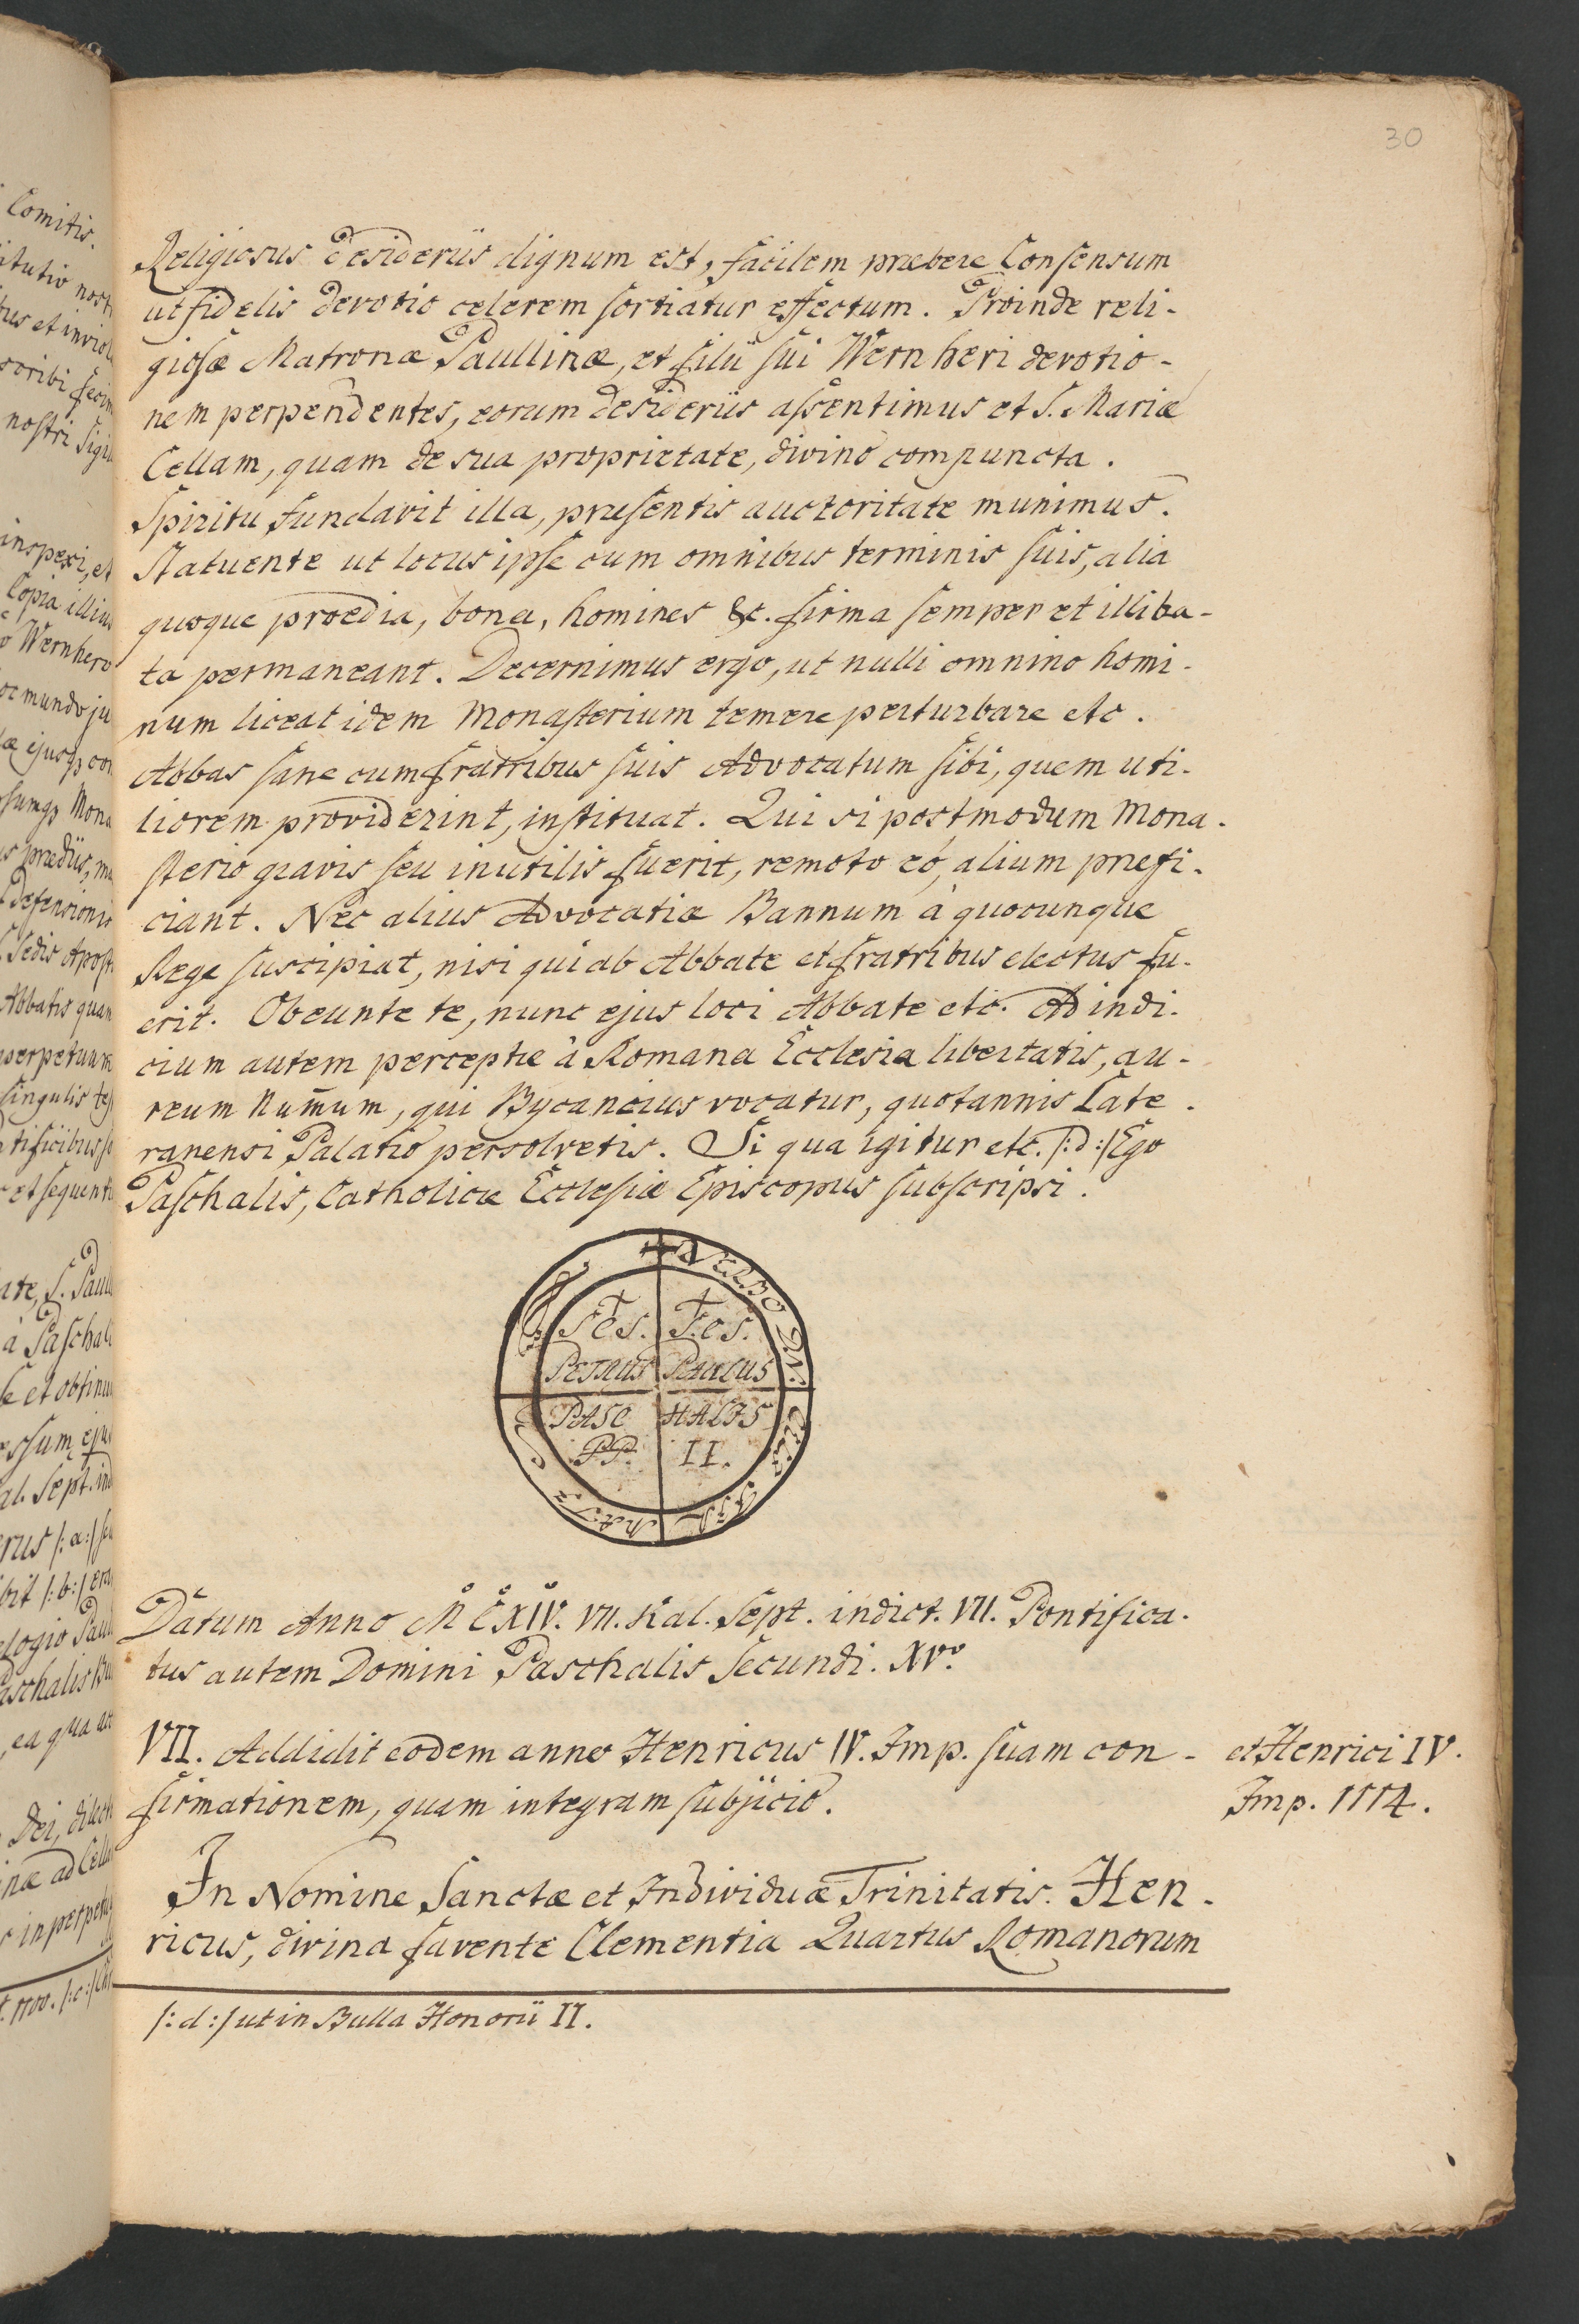 30
Religiosus desideriis dignum est, facilem præbere Consensum
ut fidelis devotio celerem sortiatur effectum. Proinde reli-
giosæ Matronæ Paullinæ, et filii sui Wernheri devotio-
nem perpendentes, eorum desideriis assentimus et S. Mariæ
Cellam, quam de sua proprietate, divino compuncta.
Spiritu fundavit illa, præsentis auctoritate munimus.
Statuente ut locus ipse cum omnibus terminis suis, alia
quoque prœdia, bona, homines &c. firma semper et illiba-
ta permaneant. Decernimus ergo, ut nulli omnino homi-
num liceat idem Monasterium temere perturbare etc.
Abbas sane cum fratribus suis Advocatum sibi, quem uti-
liorem providerint, instituat. Qui si postmodum Mona-
sterio gravis seu inutilis fuerit, remoto eo, alium præfi-
ciant. Nec alius Advocatiæ Bannum à quocunque
Rege suscipiat, nisi qui ab Abbate et fratribus electus fu-
erit. Obeunte te, nunc ejus loci Abbate etc. Ad indi-
cium autem perceptæ à Romana Ecclesia libertatis, au-
reum Num̄um, qui Bycancius vocatur, quotannis Late-
ranensi Palatio persolvetis. Si qua igitur etc. /:d:/ Ego
Paschalis, Catholicæ Ecclesiæ Episcopus subscripsi.
Scs. Scs.
PETRUS PAULUS
PASC HALIS
PP. II.
Datum Anno M C XIV. VII. Kal. Sept. indict. VII. Pontifica-
tus autem Domini Paschalis Secundi. XVº.
VII. Addidit eodem anno Henricus IV. Imp. suam con-
firmationem, quam integram subjicio.
et Henrici IV.
Imp. 1114.
In Nomine Sanctæ et Individuæ Trinitatis. Hen-
ricus, divina favente Clementia Quartus Romanorum
/:d:/ ut in Bulla Honorii II.